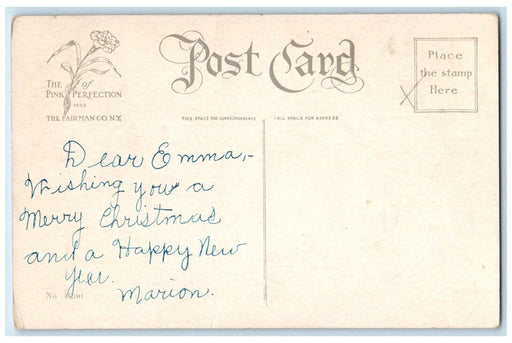 Post Card
THE of
PINK PERFECTION
THE FAIRMAN CO. N.Y.
Place
the stamp
Here
THIS SPACE FOR CORRESPONDENCE
THIS SPACE FOR ADDRESS
Dear Emma,-
Wishing you a
Merry Christmas
and a Happy New
Year.
Marion.
No.